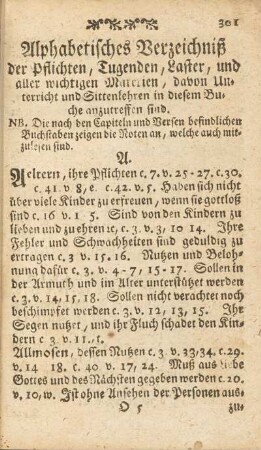 301
Alphabetisches Verzeichniß
der Pflichten, Tugenden, Laster, und
aller wichtigen Materien, davon Un-
terricht und Sittenlehren in diesem Bu-
che anzutreffen sind.
NB. Die nach den Capiteln und Versen befindlichen
Buchstaben zeigen die Noten an, welche auch mit-
zulesen sind.
A.
Aeltern, ihre Pflichten c. 7. v. 25-27. c. 30.
c. 41. v 8, e. c. 42. v. 5. Haben sich nicht
über viele Kinder zu erfreuen, wenn sie gottloß
sind c. 16 v. 1-5. Sind von den Kindern zu
lieben und zu ehren c. 3. v. 3, 10 14. Ihre
Fehler und Schwachheiten sind geduldig zu
ertragen c. 3 v. 15. 16. Nutzen und Beloh-
nung dafür c. 3. v. 4-7, 15-17. Sollen in
der Armuth und im Alter unterstützet werden
c. 3. v. 14, 15, 18. Sollen nicht verachtet noch
beschimpfet werden c. 3. v. 12, 13, 15. Ihr
Segen nutzet, und ihr Fluch schadet den Kin-
dern c. 3 v. 11.
Allmosen, dessen Nutzen c. 3. v. 33, 34. c. 29.
v. 14 18. c. 40 v. 17, 24. Muß aus Liebe
Gottes und des Nächsten gegeben werden c. 29.
v. 10, w. Ist ohne Ansehen der Personen aus-
O 5 zu-